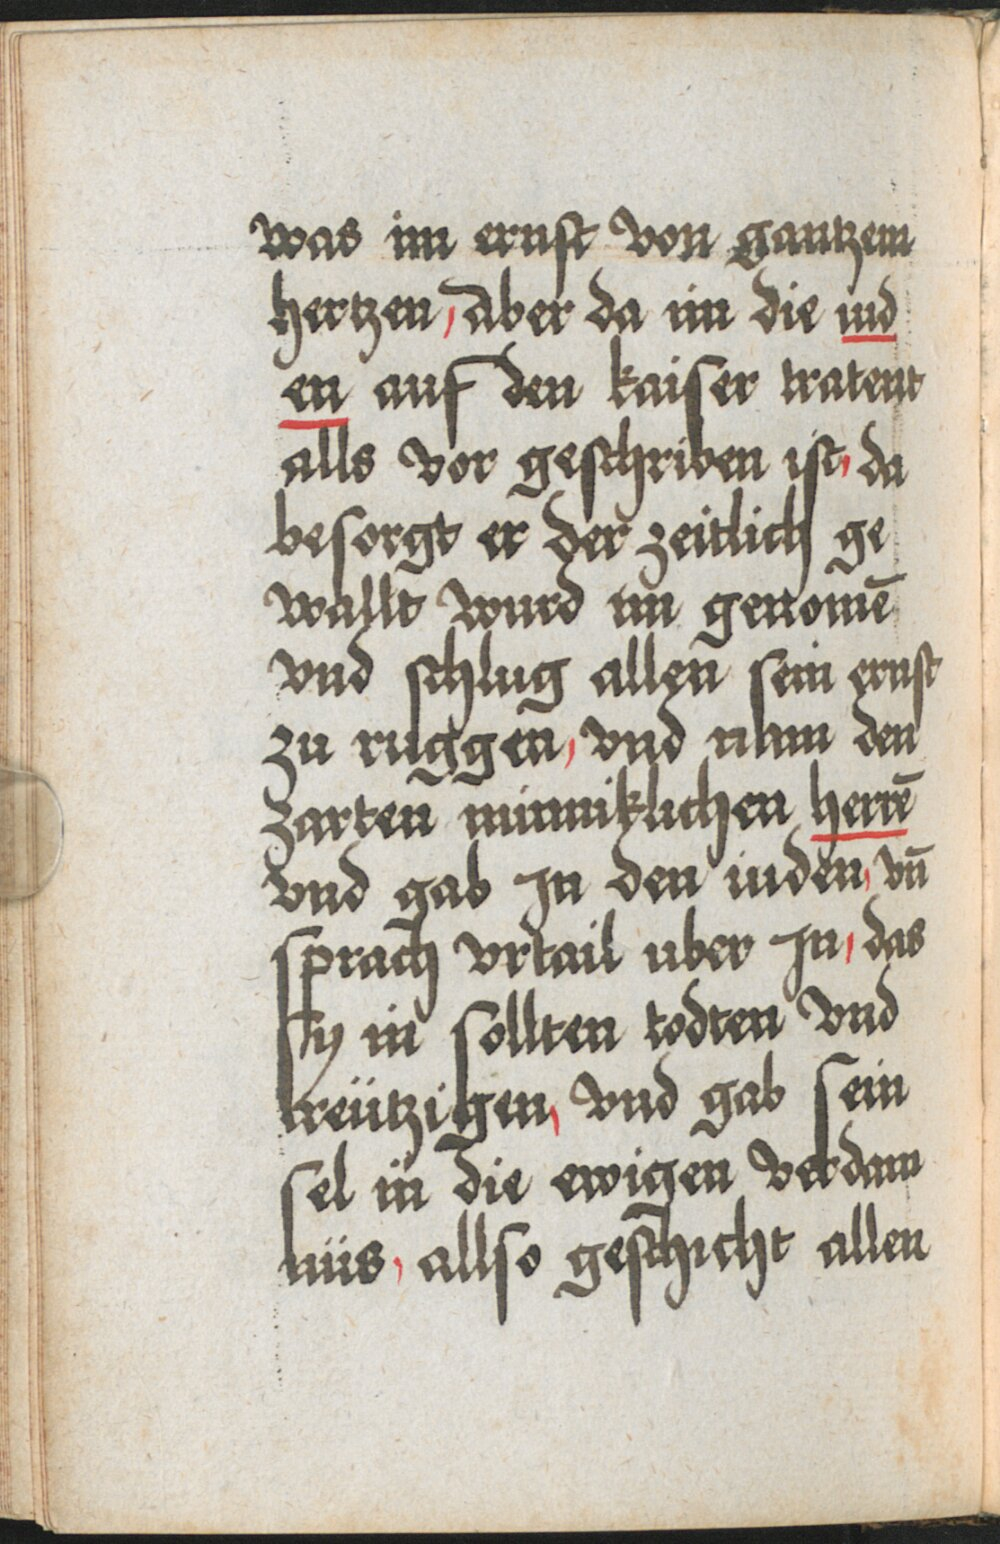 was im ernst von gantzem
hertzen, Aber da im die iud
en auf den kaiser tratent
alls vor geschriben ist, da
besorgt er der zeitlich ge
wallt wurd im genomē
vnd schlug allen sein ernst
zu ruggen, vnd nam den
zarten minniklichen herrē
vnd gab In den iuden, vn̄
sprach vrtail uber In, das
sy in sollten todten vnd
kreützigen, vnd gab sein
sel in die ewigen verdam
nüs, allso geschicht allen